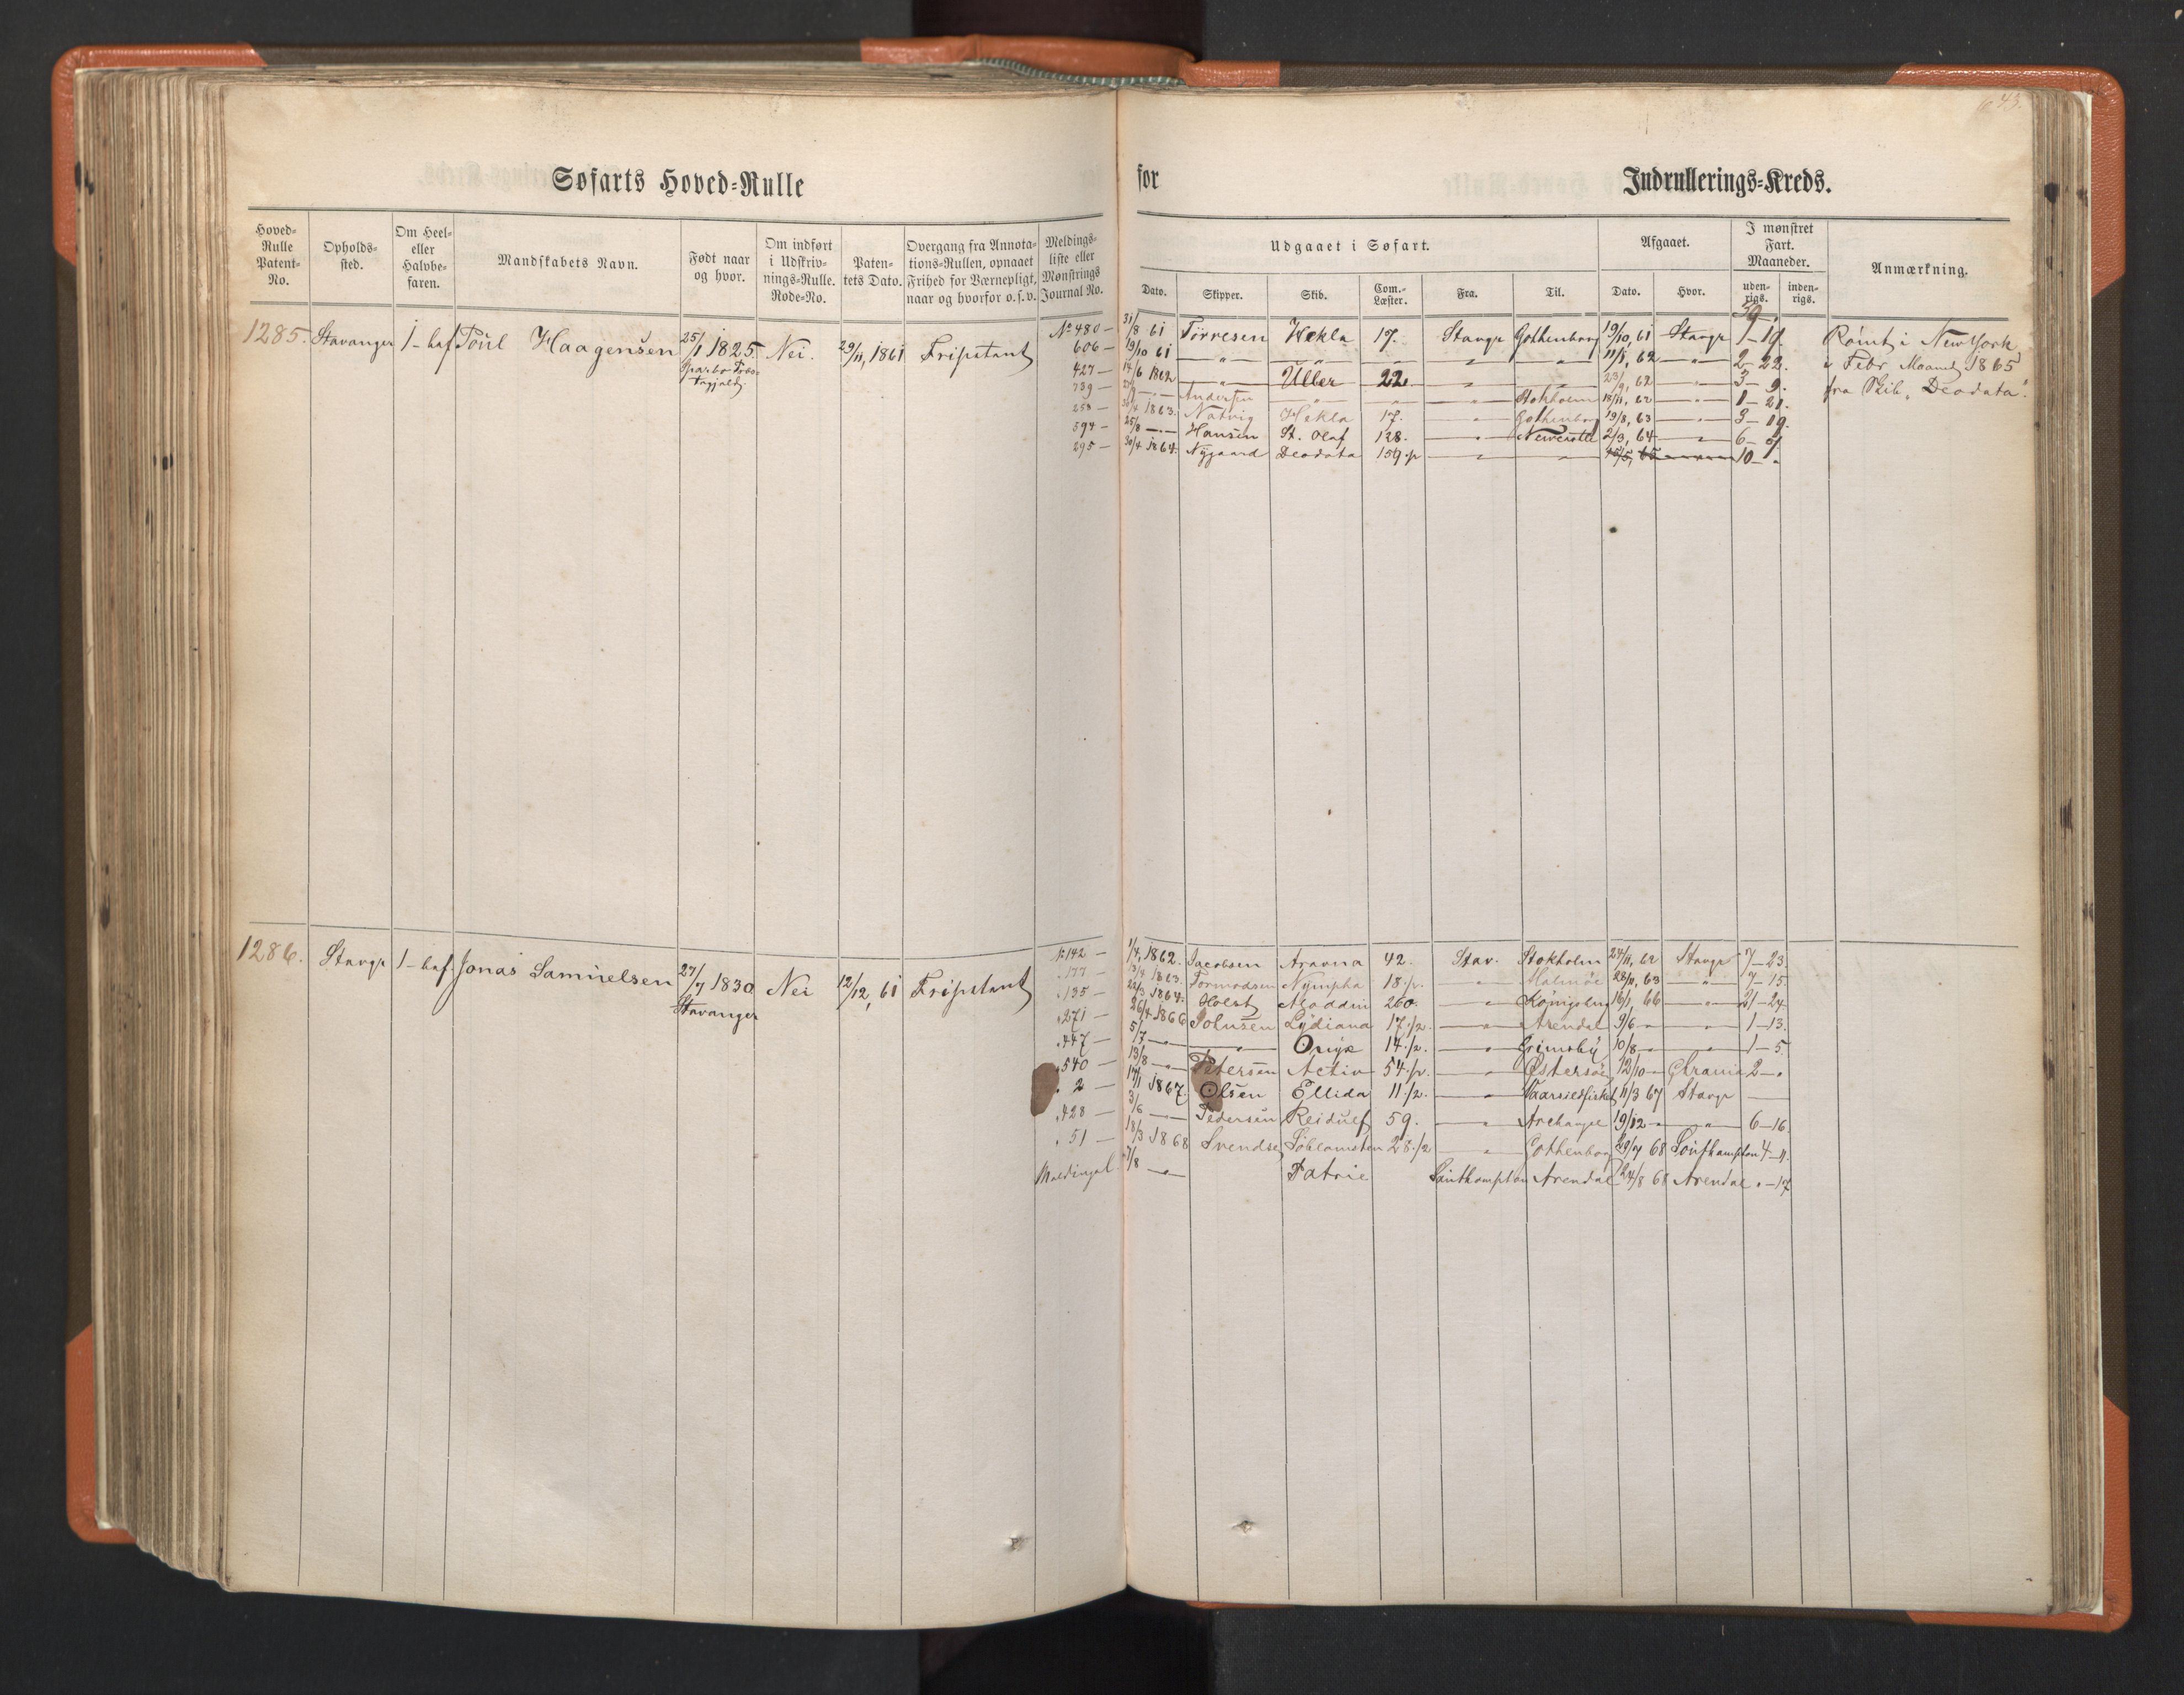 643.
Søfarts Hoved-Rulle for Indrullerings-Kreds.
Hoved-Rulle Patent-No. Opholds-sted. Om Heel- eller Halvbe-faren. Mandskabets Navn. Født naar og hvor. Om indført i Udskriv-nings-Rulle. Rode-No. Paten-tets Dato. Overgang fra Annota-tions-Rullen, opnaaet Frihed for Værnepligt, naar og hvorfor o.s.v. Meldings-liste eller Mønstrings Journal No.
Udgaaet i Søfart. Afgaaet. I mønstret Fart. Maaneder. Anmærkning.
Dato. Skipper. Skib. Com.-Læster. Fra. Til. Dato. Hvor. uden-rigs. inden-rigs.
1285. Stavanger 1-bef Poul Haagensen 25/1 1825. Nei. 29/11, 1861 Fripstant
No 480 — 31/8 61 Tørresen Hekla 17. Stavgr Gothenborg 19/10, 61 Stavgr 1-19. Rømt i New York
606 — 19/10 61 — " — — " — — " — " " 11/1, 62 — " — 2-22. i Febr Maaned 1865
427 — 14/6 1862 — " — Uller 22. " " 23/9, 62 — " — 3- 9. fra Skib. "Deodata".
739 — Andersen " " " Stokholm 18/11, 62 — " — 1-21.
253 — 30/4 1863. Natvig Hekla 17. " Gothenborg 19/8, 63 — " — 3-19.
594 — 25/8 — " — Hansen St. Olaf 128. " Newcastle 2/3, 64 — " — 6- 7.
295 — 30/4 1864. Nygaard Deodata 159.½ " " 10- ".
1286. Stavgr 1-bef. Jonas Samuelsen 27/7 1830 Stavanger Nei 12/12, 61 Fripstant
No 142 — 1/4, 1862. Jacobsen Aravna 42. Stav. Stokholm 24/11, 62 Stavgr 7-23.
" 177 — 13/4 1863. Tormodsen Nympha 18.½. " Malmøe 28/11, 63 " 7-15.
" 135 — 22/3 1864. Holst Aladdin 260. " Königsberg 16/1, 66 " 21-24.
" 271 — 26/4 1866 Johnsen Lydiana 17.½. " Arendal 9/6 — " " 1-13.
" 447 — 5/7 — " — — " — Onyx 14.½. " Grimsby 10/8 — " " 1-5.
" 540 — 13/8 — " — Petersen Activ 54.½. " Østersøe 12/10 — Chrania 2-".
" 2 — 17/1 1867. Olsen Ellida 11.½. " Vaarsildfisket 11/3 67 Stavgr —
" 428 — 3/6 — " — Pedersen Reidulf 59. " Archangel 19/12 — " " 6-16.
" 51 — 18/3 1868 Svendsen Søblomsten 28.½ " Gothenborg 29/7 68 Southampton 4-11.
Meldingsl. 7/8 — " — Patrie Southampton Arendal 24/8 68 Arendal "-17